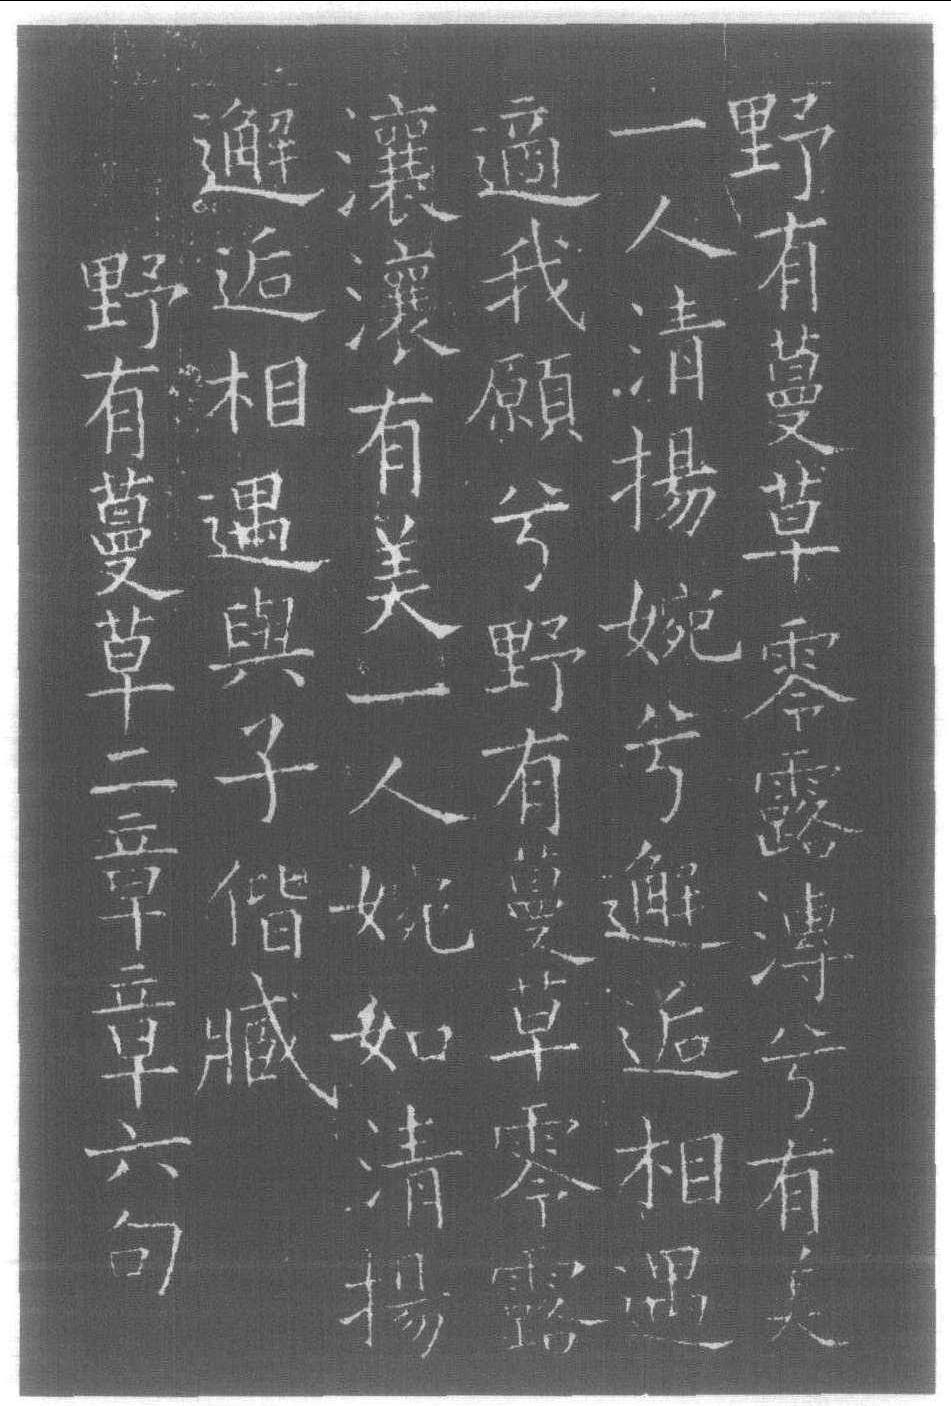 野有蔓草零露漙兮有美
一人清揚婉兮邂逅相遇
適我願兮野有蔓草零露
瀼瀼有美一人婉如清揚
邂逅相遇與子偕臧
野有蔓草二章章六句